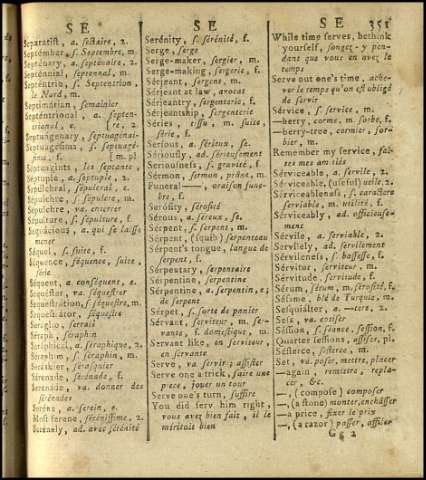 S E
Separatist, a. sectaire, 2.
September, s. Septembre, m.
Septénary, a. septénaire, 2.
Septénnial, septennal, m.
Septéntrio, s. Septentrion,
le Nord, m.
Septimárian, semainier
Septentrional, a. septen-
trional, e.
Septuagenary, septuagénaire
Septuagésima, s. septuagé-
sime, f.
Septuagints, les septante,
Séptuple, a. septuple
Sepúlchral, sépulcral, e.
Sépulchre, s. sépulcre, m.
Sepulchre, va. enterrer
Sépulture, s. sépulture, f.
Sequácious, a. qui se laisse
mener
Séquel, s. suite, f.
Séquence, séquence, suite,
série
Séquent, a. conséquent, e.
Sequéster, va. séquestrer
Sequestrátion, f. séquestre, m.
Sequestrátor, séquestre
Seraglio, serrail
Séraph, séraphin
Seráphical, a. séraphique, 2.
Séraphim, s. séraphin, m.
Seráskier, serasquier
Serenade, sérénade, f.
Serenade, va. donner des
sérénades
Seréne, a. serein, e.
Most serene, sérénissime, 2.
Serénely, ad. avec sérénité
S E
Serénity, s. sérénité, f.
Serge, serge
Serge-maker, sergier, m.
Serge-making, sergerie, f.
Sérjeant, sergent, m.
Sérjeant at law, avocat
Sérjeantry, sergenterie, f.
Sérjeantship, sergenterie
Séries, issu, m. suite,
série, f.
Serious, a. sérieux, se.
Sériously, ad. sérieusement
Seriousness, s. gravité, f.
Sérmon, sermon, prône, m.
Funeral——, oraison fune-
bre, f.
Serósity, sérosité
Sérous, a. séreux, se.
Sérpent, s. serpent, m.
Serpent, (squib) serpenteau
Sérpent's tongue, langue de
serpent, f.
Sérpentary, serpentaire
Sérpentine, serpentine
Sérpentine, a. serpentin, e;
de serpent
Sérpet, s. sorte de panier
Sérvant, serviteur, m. ser-
vante, f. domestique, m.
Servant like, en serviteur,
en servante
Serve, va servir; assister
Serve one a trick, faire une
piece, jouer un tour
Serve one's turn, suffire
You did serv him right,
vous avez bien fait, il le
méritoit bien
S E 351
While time serves, bethink
yourself, songez-y pen-
dant que vous en avez le
temps
Serve out one's time, ache-
ver le temps qu'on est obligé
de servir
Sérvice, s. service, m.
—berry, corme, m. sorbe, f.
—berry-tree, cormier, sor-
bier, m.
Remember my service, fai-
tes mes amitiés
Sérviceable, a. servile, 2.
Sérviceable, (useful) utile, 2.
Sérviceableness, s. caractere
serviable, m. utilité, f.
Sérviceably, ad. officieuse-
ment
Sérvile, a. serviable, 2.
Sérvilely, ad. servilement
Sérvileness, s. bassesse, f.
Sérvitor, serviteur, m.
Sérvitude, servitude, f.
Sérum, sérum, m. sérosité, f.
Sésame, blé de Turquie, m.
Sesquiálter, a. —tere, 2.
Sess, va. cotiser
Séssion, s. séance, session, f.
Quarter sessions, assises, pl.
Sésterce, sesterce, m.
Set, va. poser, mettre, placer
—again, remettre, repla-
cer, &c.
—, (compose) composer
—, (a stone) monter, enchâsser
—a price, fixer le prix
—, (a razor) passer, affiler
G g 2